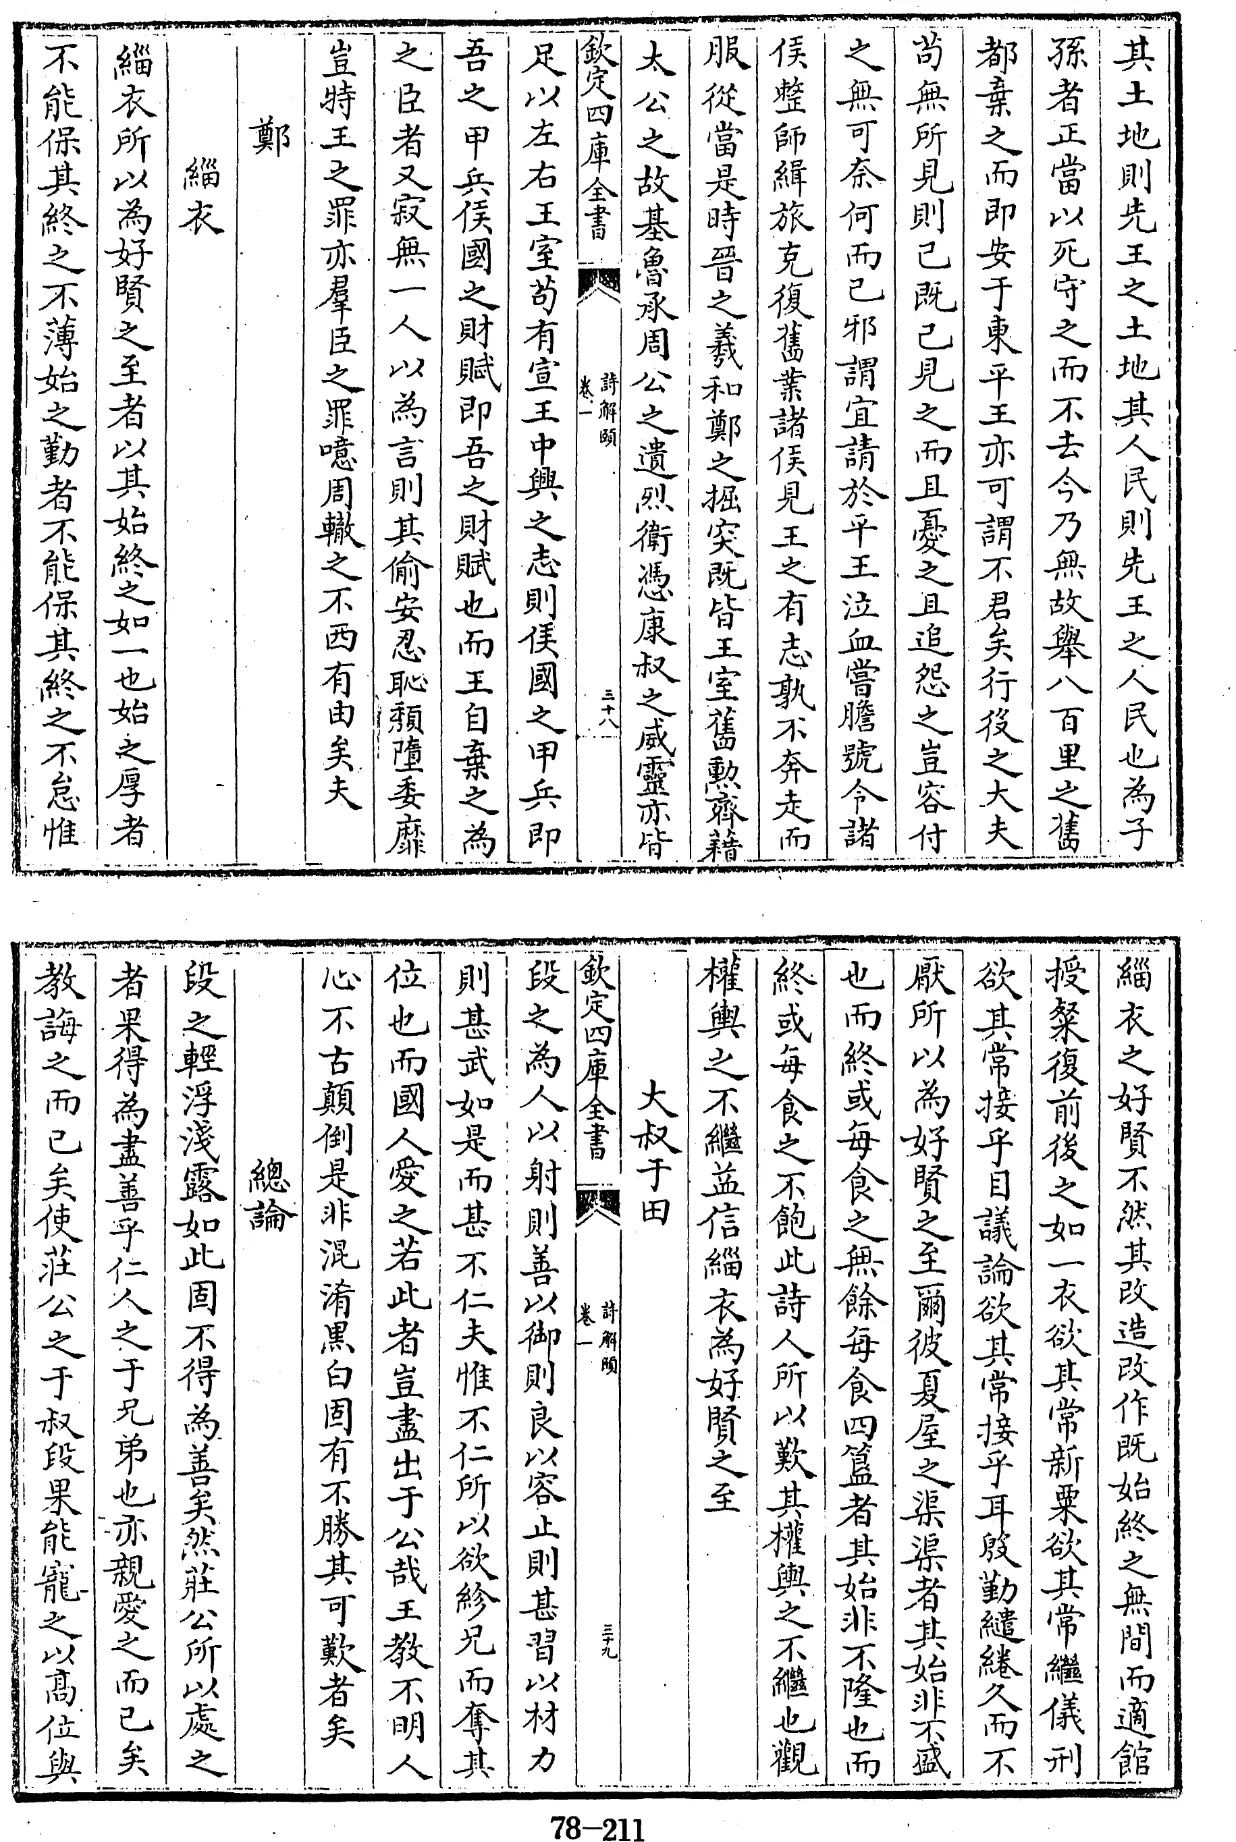 其土地則先王之土地其人民則先王之人民也為子
孫者正當以死守之而不去今乃無故舉八百里之舊
都棄之而即安于東平王亦可謂不君矣行役之大夫
苟無所見則已既已見之而且憂之且追怨之豈容付
之無可奈何而已邪謂宜請於平王泣血嘗膽號令諸
侯整師緝旅克復舊業諸侯見王之有志孰不奔走而
服從當是時晉之羲和鄭之掘突既皆王室舊勲齊藉
太公之故基魯承周公之遺烈衛憑康叔之威靈亦皆
欽定四庫全書
詩解頤
卷一
三十八
足以左右王室茍有宣王中興之志則侯國之甲兵即
吾之甲兵侯國之財賦即吾之財賦也而王自棄之為
之臣者又寂無一人以為言則其偷安忍恥頽墮委靡
豈特王之罪亦羣臣之罪噫周轍之不西有由矣夫
鄭
緇衣
緇衣所以為好賢之至者以其始終之如一也始之厚者
不能保其終之不薄始之勤者不能保其終之不怠惟
緇衣之好賢不然其改造改作既始終之無間而適館
授粲復前後之如一衣欲其常新粟欲其常繼儀刑
欲其常接乎目議論欲其常接乎耳殷勤繾綣久而不
厭所以為好賢之至爾彼夏屋之渠渠者其始非不盛
也而終或每食之無餘每食四簋者其始非不隆也而
終或每食之不飽此詩人所以歎其權輿之不繼也觀
權輿之不繼益信緇衣為好賢之至
大叔于田
欽定四庫全書
詩解頤
卷一
三十九
段之為人以射則善以御則良以容止則甚習以材力
則甚武如是而甚不仁夫惟不仁所以欲紾兄而奪其
位也而國人愛之若此者豈盡出于公哉王教不明人
心不古顛倒是非混淆黑白固有不勝其可歎者矣
總論
段之輕浮淺露如此固不得為善矣然莊公所以處之
者果得為盡善乎仁人之于兄弟也亦親愛之而已矣
教誨之而已矣使莊公之于叔段果能寵之以髙位與
78-211